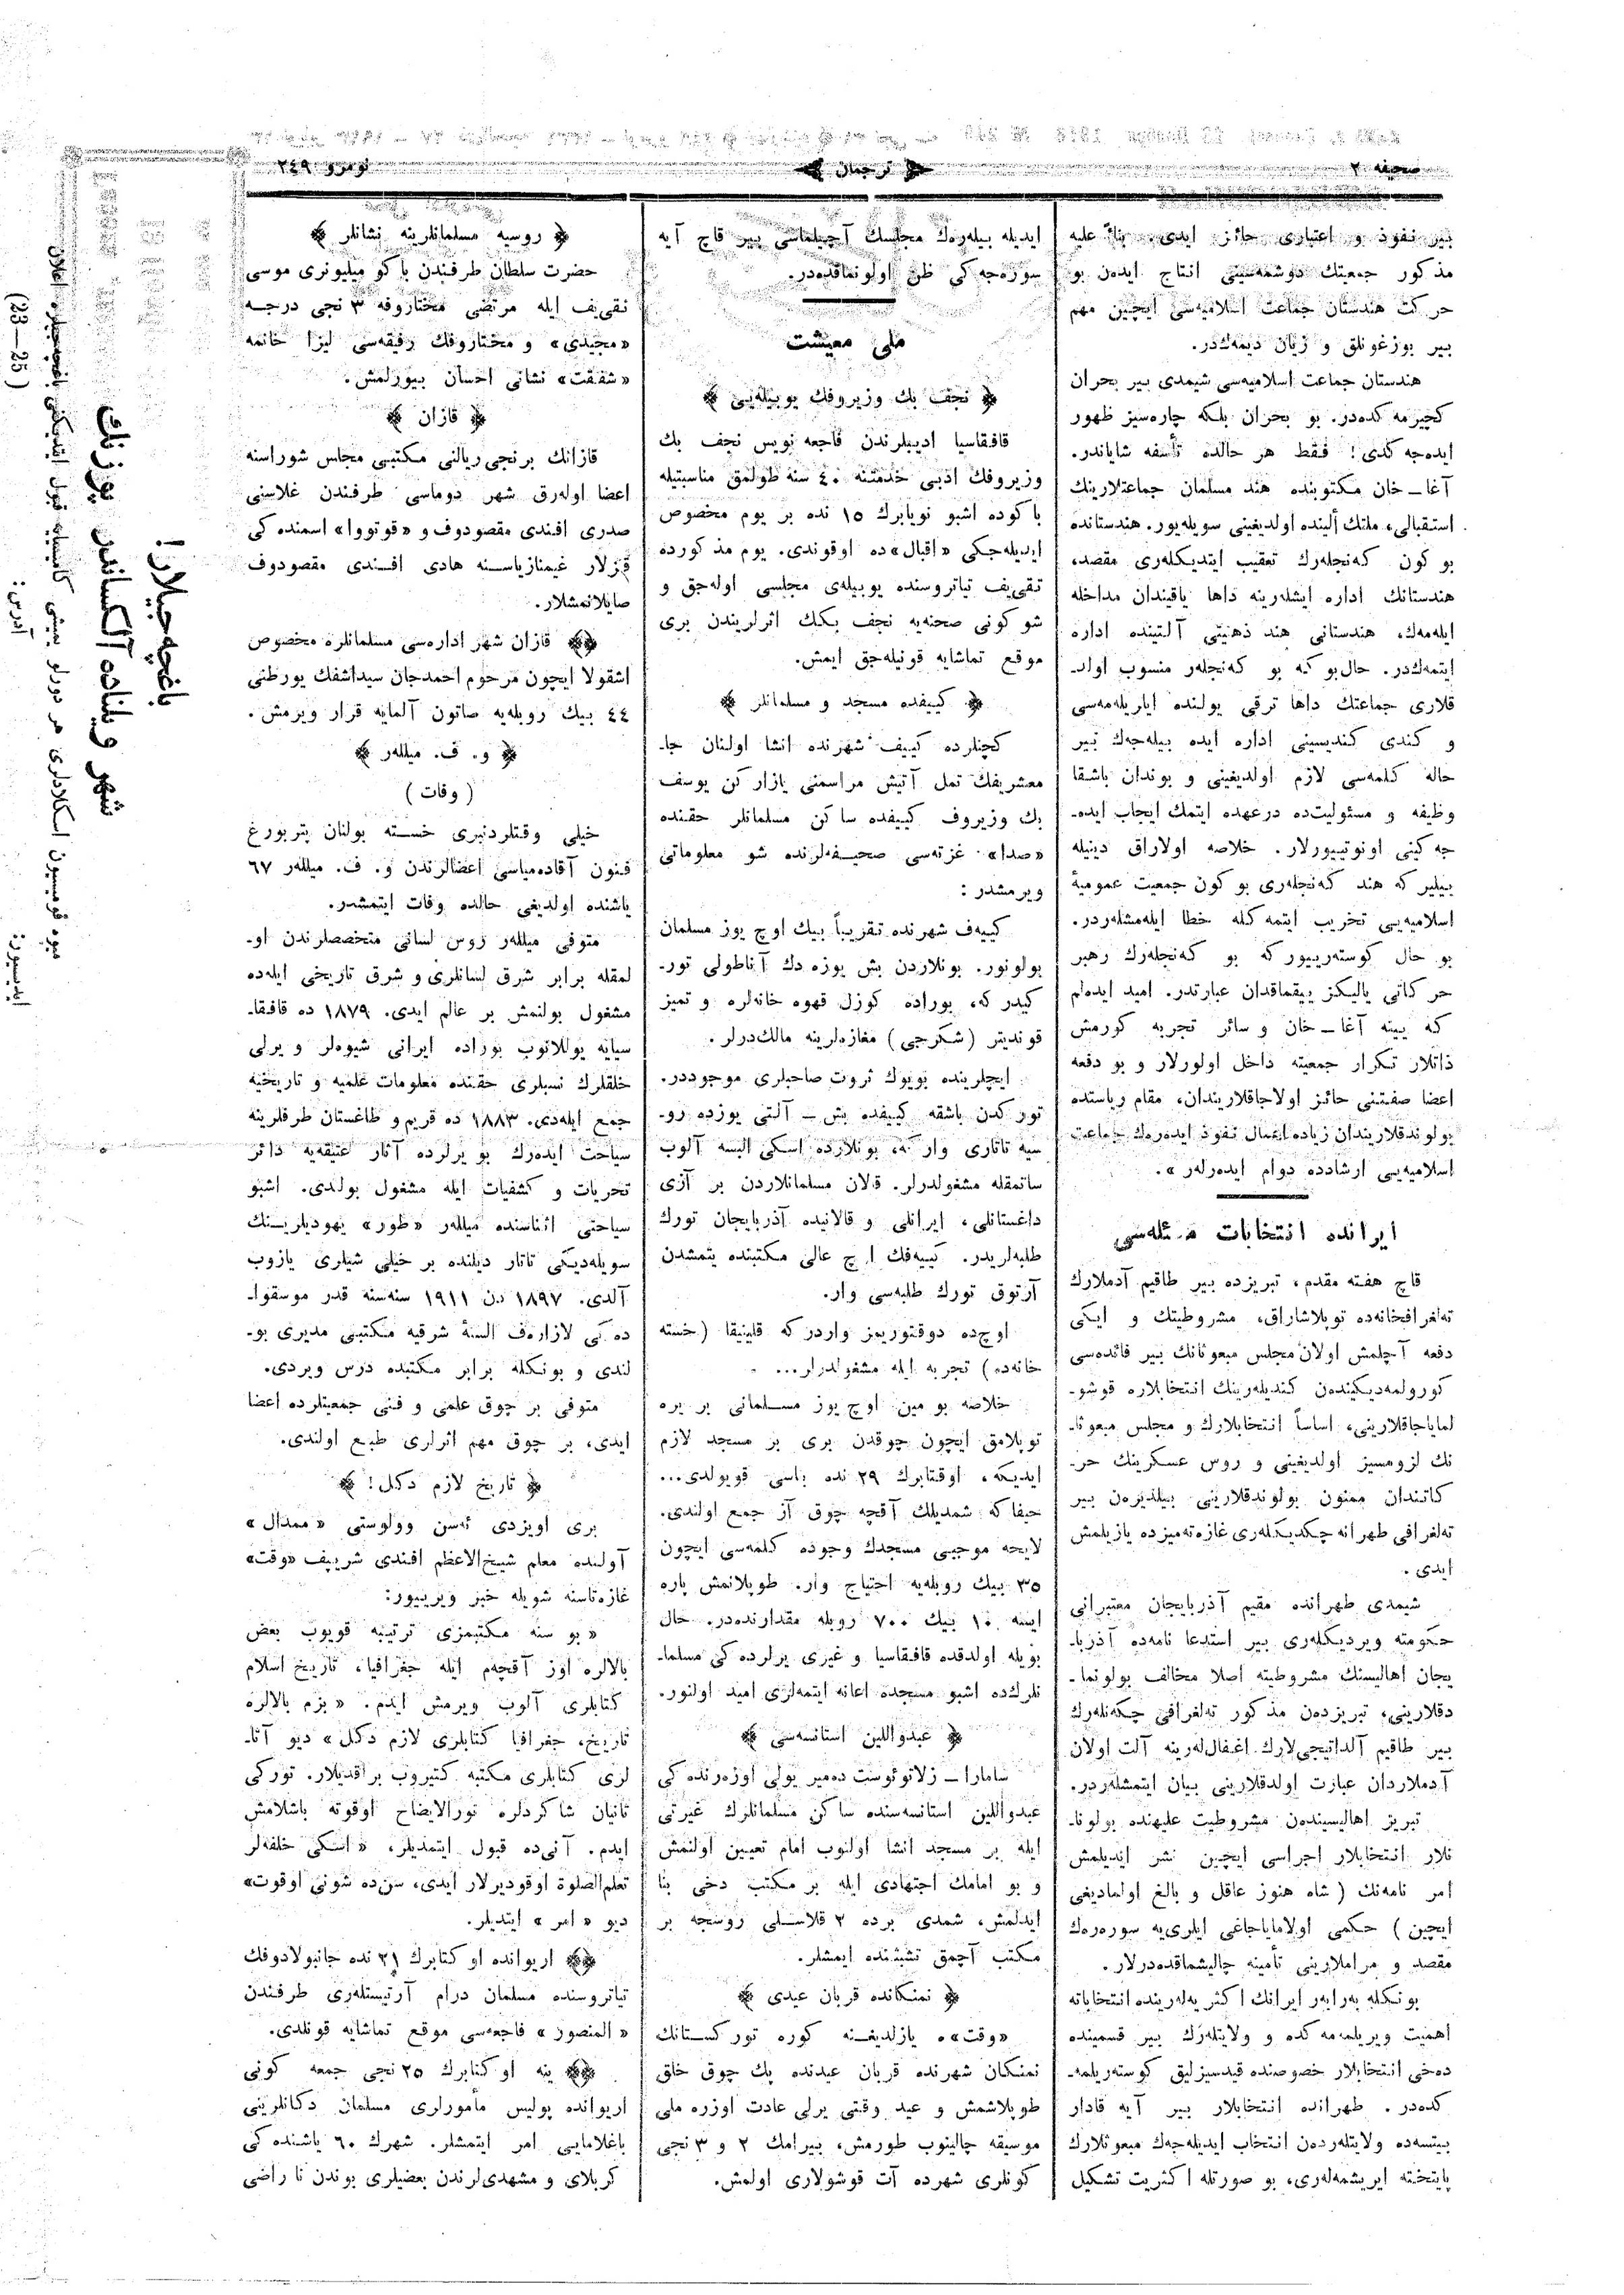 صحیفه ٢
ترجمان
نومرو ٢٤٩
بیر نفوذ و اعتباری حائز ایدی. بناءً علیه
مذكور جمعیتك دوشمه‌سینی انتاج ایده‌ن بو
حركت هندستان جماعت اسلامیه‌سی ایچین مهم
بیر بوزغونلق و زیان دیمه‌كدر.
هندستان جماعت اسلامیه‌سی شیمدی بیر بحران
كچیرمه كده‌در. بو بحران بلكه چاره‌سیز ظهور
ایده‌جه كدی! فقط هر حالده تأسفه شایاندر.
آغا ـ خان مكتوبنده هند مسلمان جماعتلارینك
استقبالی، ملتك ألینده اولدیغینی سویله‌یور. هندستانده
بو كون كه‌نجله‌رك تعقیب ایتدیكله‌ری مقصد،
هندستانك اداره ایشله‌رینه داها یاقیندان مداخله
ایله‌مه‌ك، هندستانی هند ذهنیتی آلتینده اداره
ایتمه‌كدر. حال‌بو كه بو كه‌نجله‌ر منسوب اولد‌ـ
قلاری جماعتك داها ترقی یولنده ایاریله‌مه‌سی
و كندی كندیسینی اداره ایده بیله‌جه‌ك بیر
حاله كلمه‌سی لازم اولدیغینی و بوندان باشقا
وظیفه و مسئولیت‌ده درعهده ایتمك ایجاب ایده‌ـ
جه كینی اونوتییورلار. خلاصه اولاراق دینیله
بیلیر كه هند كه‌نجله‌ری بو كون جمعیت عمومیهٔ
اسلامیه‌یی تخریب ایتمه كله خطا ایله‌مشله‌ردر.
بو حال كوسته‌رییور كه بو كه‌نجله‌رك رهبر
حركاتی یالیكز ییقماقدان عبارتدر. امید ایده‌لم
كه یینه آغا ـ خان و سائر تجربه كورمش
ذاتلار تكرار جمعیته داخل اولورلار و بو دفعه
اعضا صفتینی حائز اولاجاقلاریندان، مقام ریاستده
بولوندقلاریندان زیاده اعمال نفوذ ایده‌رەك جماعت
اسلامیه‌یی ارشادده دوام ایده‌رله‌ر ».
ایرانده انتخابات مسئله‌سی
قاچ هفته مقدم، تبریزده بیر طاقیم آدملارك
ته‌لغرافخانه‌ده توپلاشاراق، مشروطیتك و ایكی
دفعه آچلمش اولان مجلس مبعوثانك بیر فائده‌سی
كورولمه‌دیكینده‌ن كندیله‌رینك انتخابلاره قوشو‌ـ
لمایاجاقلارینی، اساساً انتخابلارك و مجلس مبعوثا‌ـ
نك لزومسیز اولدیغینی و روس عسكرینك حر‌ـ
كاتندان ممنون بولوندقلارینی بیلدیره‌ن بیر
ته‌لغرافی طهرانه چكدیكله‌ری غازه‌ته‌میزده یازیلمش
ایدی.
شیمدی طهرانده مقیم آذربایجان معتبرانی
حكومته ویردیكله‌ری بیر استدعا نامه‌ده آذربا‌ـ
یجان اهالیسنك مشروطیته اصلا مخالف بولونما‌ـ
دقلارینی، تبریزده‌ن مذكور ته‌لغرافی چكه‌نله‌رك
بیر طاقیم آلداتیجی‌لارك اغفال‌له‌رینه آلت اولان
آدملاردان عبارت اولدقلارینی بیان ایتمشله‌ردر.
تبریز اهالیسینده‌ن مشروطیت علیهنده بولونا‌ـ
نلار انتخابلار اجراسی ایچین نشر ایدیلمش
امر نامه‌نك (شاه هنوز عاقل و بالغ اولمادیغی
ایچین) حكمی اولامایاجاغی ایلری‌یه سوره‌رەك
مقصد و مراملارینی تأمینه چالیشماقده‌درلار.
بونكله به‌رابه‌ر ایرانك اكثر یه‌له‌رینده انتخاباته
اهمیت ویریلمه‌مه كده و ولایتله‌رك بیر قسمینده
ده‌خی انتخابلار خصوصنده قیدسیزلیق كوسته‌ریلمه‌ـ
كده‌در. طهرانده انتخابلار بیر آیه قادار
بیتسه‌ده ولایتله‌رده‌ن انتخاب ایدیله‌جه‌ك مبعوثلارك
پایتخته ایریشمه‌له‌ری، بو صورتله اكثریت تشكیل
ایدیله بیله‌رەك مجلسك آچیلماسی بیر قاچ آیه
سوره‌جه كی ظن اولونماقده‌در.
ملی معیشت
نجف بك وزیروفك یوبیله‌یی
قافقاسیا ادیبلرندن فاجعه نویس نجف بك
وزیروفك ادبی خدمتنه ٤٠ سنه طولمق مناسبتیله
باكوده اشبو نویابرك ١٥ نده بر یوم مخصوص
ایدیله‌جكی «اقبال»ده اوقوندی. یوم مذكورده
تقی‌یف تیاتروسنده یوبیله‌ی مجلسی اوله‌جق و
شو كونی صحنه‌یه نجف بكك اثرلریندن بری
موقع تماشایه قونیله‌جق ایمش.
كییفده مسجد و مسلمانلر
كچنلرده كییف شهرنده انشا اولنان جا‌ـ
معشریفك تمل آتیش مراسمنی یازاركن یوسف
بك وزیروف كییفده ساكن مسلمانلر حقنده
«صدا» غزته‌سی صحیفه‌لرنده شو معلوماتی
ویرمشدر :
كییه‌ف شهرنده تقریباً بیك اوچ یوز مسلمان
بولونور. بونلاردن بش یوزه دك آناطولی تور‌ـ
كیدر كه، بوراده كوزل قهوه خانه‌لره و تمیز
قوندیتر (شكرجی) مغازه‌لرینه مالك‌درلر.
ایچلرینده بویوك ثروت صاحبلری موجوددر.
توركدن باشقه كییفده بش ـ آلتی یوزده رو‌ـ
سیه تاتاری وار كه، بونلارده اسكی البسه آلوب
ساتمقله مشغولدرلر. قلان مسلمانلاردن بر آزی
داغستانلی، ایرانلی و قالانیده آذربایجان تورك
طلبه‌لریدر. كییه‌فك اوچ عالی مكتبنده یتمشدن
آرتوق تورك طلبه‌سی وار.
اوچ‌ده دوقتوریمز واردر كه قلینیقا (خسته
خانه‌ده) تجربه ایله مشغولدرلر...
خلاصه بو مین اوچ یوز مسلمانی بر یره
توپلامق ایچون چوقدن بری بر مسجد لازم
ایدیكه، اوقتابرك ٢٩ نده باسی قویولدی...
حیفاكه شمدیلك آقچه چوق آز جمع اولندی.
لایحه موجبی مسجدك وجوده كلمه‌سی ایچون
٣٥ بیك روبله‌یه احتیاج وار. طوپلانمش پاره
ایسه ١٠ بیك ٧٠٠ روبله مقدارنده‌در. حال
بویله اولدقده قافقاسیا و غیری یرلرده كی مسلما‌ـ
نلرك‌ده اشبو مسجده اعانه ایتمه‌لری امید اولنور.
عبدواللین استانسه‌سی
سامارا ـ زلاتوئوست ده‌میر یولی اوزه‌رنده كی
عبدواللین استانسه‌سنده ساكن مسلمانلرك غیرتی
ایله بر مسجد انشا اولنوب امام تعیین اولنمش
و بو امامك اجتهادی ایله بر مكتب دخی بنا
ایدلمش، شمدی برده ٢ قلاسلی روسجه بر
مكتب آچمق تشبثنده ایمشلر.
نمنكانده قربان عیدی
«وقت»ه یازلدیغنه كوره توركستانك
نمنكان شهرنده قربان عیدنده پك چوق خلق
طوپلاشمش و عید وقتی یرلی عادت اوزره ملی
موسیقه چالینوب طورمش، بیرامك ٢ و ٣ نجی
كونلری شهرده آت قوشولاری اولمش.
روسیه مسلمانلرینه نشانلر
حضرت سلطان طرفندن باكو میلیونری موسی
نقی‌یف ایله مرتضی مختاروفه ٣ نجی درجه
«مجیدی» و مختاروفك رفیقه‌سی لیزا خانمه
«شفقت» نشانی احسان بیورلمش.
قازان
قازانك برنجی ریالنی مكتبی مجلس شوراسنه
اعضا اوله‌رق شهر دوماسی طرفندن غلاسنی
صدری افندی مقصودوف و «قوتووا» اسمنده كی
قزلار غیمنازیاسنه هادی افندی مقصودوف
صایلانمشلار.
قازان شهر اداره‌سی مسلمانلره مخصوص
اشقولا ایچون مرحوم احمدجان سیداشفك یورطنی
٤٤ بیك روبله‌یه صاتون آلمایه قرار ویرمش.
و. ف. میلله‌ر
(وفات)
خیلی وقتلردنبری خسته بولنان پتربورغ
فنون آقاده‌میاسی اعضالرندن و. ف. میلله‌ر ٦٧
یاشنده اولدیغی حالده وفات ایتمشدر.
متوفی میلله‌ر روس لسانی متخصصلرندن او‌ـ
لمقله برابر شرق لسانلری و شرق تاریخی ایله‌ده
مشغول بولنمش بر عالم ایدی. ١٨٧٩ ده قافقا‌ـ
سیایه یوللانوب بوراده ایرانی شیوه‌لر و یرلی
خلقلرك نسبلری حقنده معلومات علمیه و تاریخیه
جمع ایله‌دی. ١٨٨٣ ده قریم و طاغستان طرفلرینه
سیاحت ایده‌رك بو یرلرده آثار عتیقه‌یه دائر
تحریات و كشفیات ایله مشغول بولدی. اشبو
سیاحتی اثناسنده میلله‌ر «طور» یهودیلرینك
سویله‌دیكی تاتار دیلنده بر خیلی شیلری یازوب
آلدی. ١٨٩٧ دن ١٩١١ سنه‌سنه قدر موسقوا‌ـ
ده كی لازاره‌ف السنهٔ شرقیه مكتبی مدیری بو‌ـ
لندی و بونكله برابر مكتبده درس ویردی.
متوفی بر چوق علمی و فنی جمعیتلرده اعضا
ایدی، بر چوق مهم اثرلری طبع اولندی.
تاریخ لازم دكل!
بری اویزدی ئه‌سن وولوستی «ممدال»
آولنده معلم شیخ‌الاعظم افندی شریپف «وقت»
غازه‌تاسنه شویله خبر ویرییور:
«بو سنه مكتبمزی ترتیبه قویوب بعض
بالالره اوز آقچه‌م ایله جغرافیا، تاریخ اسلام
كتابلری آلوب ویرمش ایدم. «بزم بالالره
تاریخ، جغرافیا كتابلری لازم دكل» دیو آتا‌ـ
لری كتابلری مكتبه كتیروب براقدیلار. توركی
تانیان شاكردلره نورالایضاح اوقوته باشلامش
ایدم. آنی‌ده قبول ایتمدیلر، «اسكی خلفه‌لر
تعلم‌الصلوة اوقودیرلار ایدی، سن‌ده شونی اوقوت»
دیو «امر» ایتدیلر.
اریوانده اوكتابرك ٢١ نده جانبولادوفك
تیاتروسنده مسلمان درام آرتیستله‌ری طرفندن
«المنصور» فاجعه‌سی موقع تماشایه قونلدی.
ینه اوكتابرك ٢٥ نجی جمعه كونی
اریوانده پولیس مأمورلری مسلمان دكانلرینی
باغلامایی امر ایتمشلر. شهرك ٦٠ یاشنده كی
كربلای و مشهدی‌لرندن بعضیلری بوندن نا راضی
باغچه‌جیلارا!
شهر ویلناده آلكساندر یوزنك
میوه قومیسیون اسكلادلری هر دورلو یمیشی
آدرس:
(23—25)